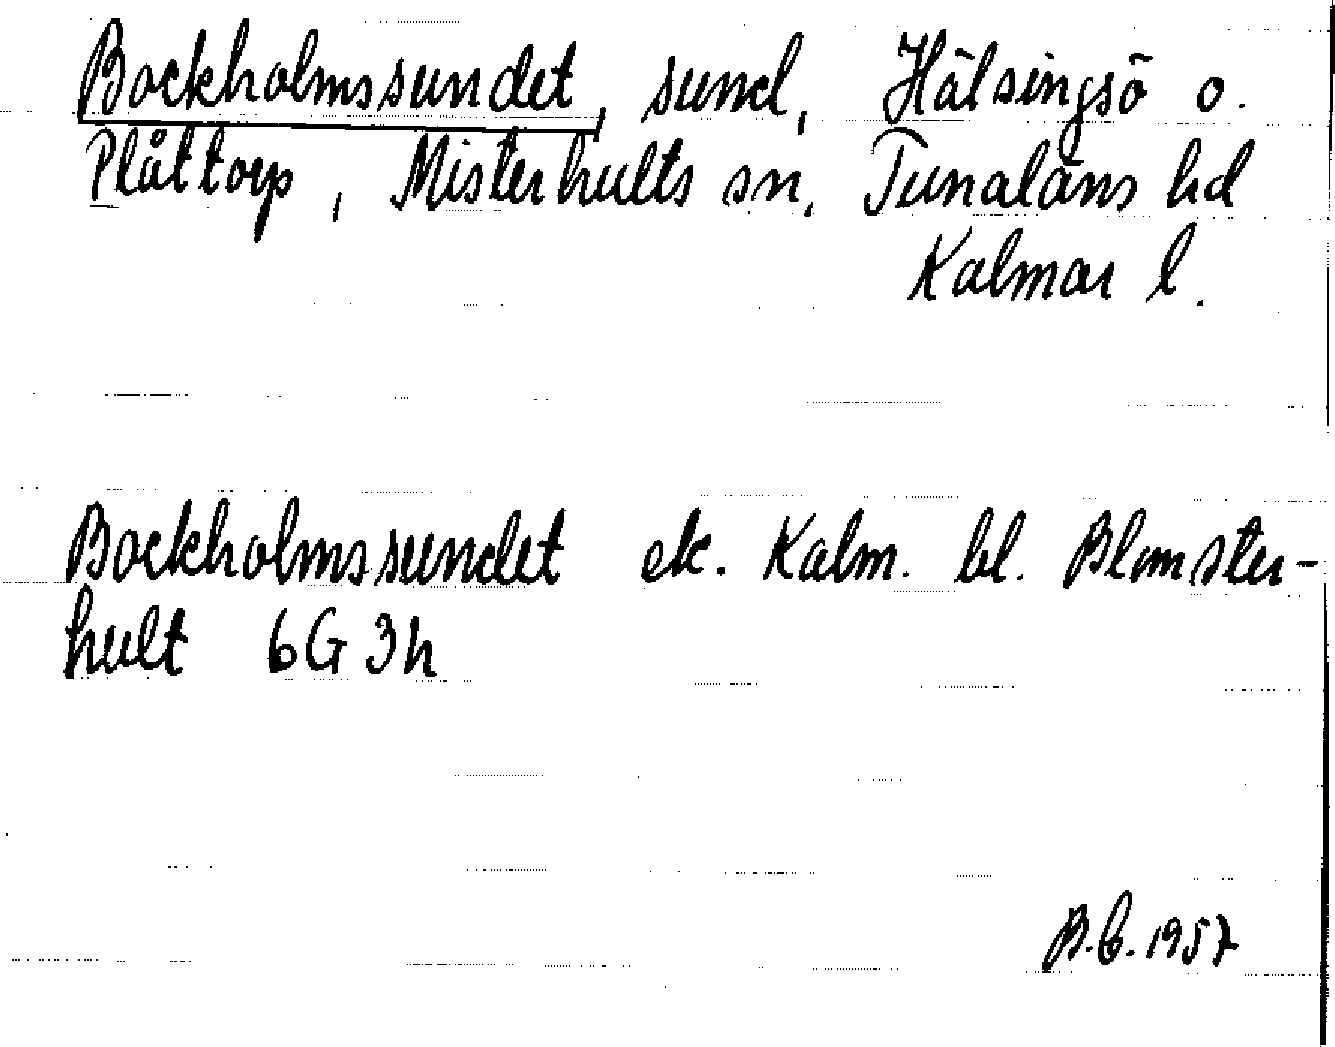 Bockholmssundet, sund, Hälsingsö o.
Plåttorp, Misterhults sn, Tunaläns hd
Kalmar l.
Bockholmssundet ek. Kalm. bl. Blomster-
hult 6G 3h
B.E. 1957